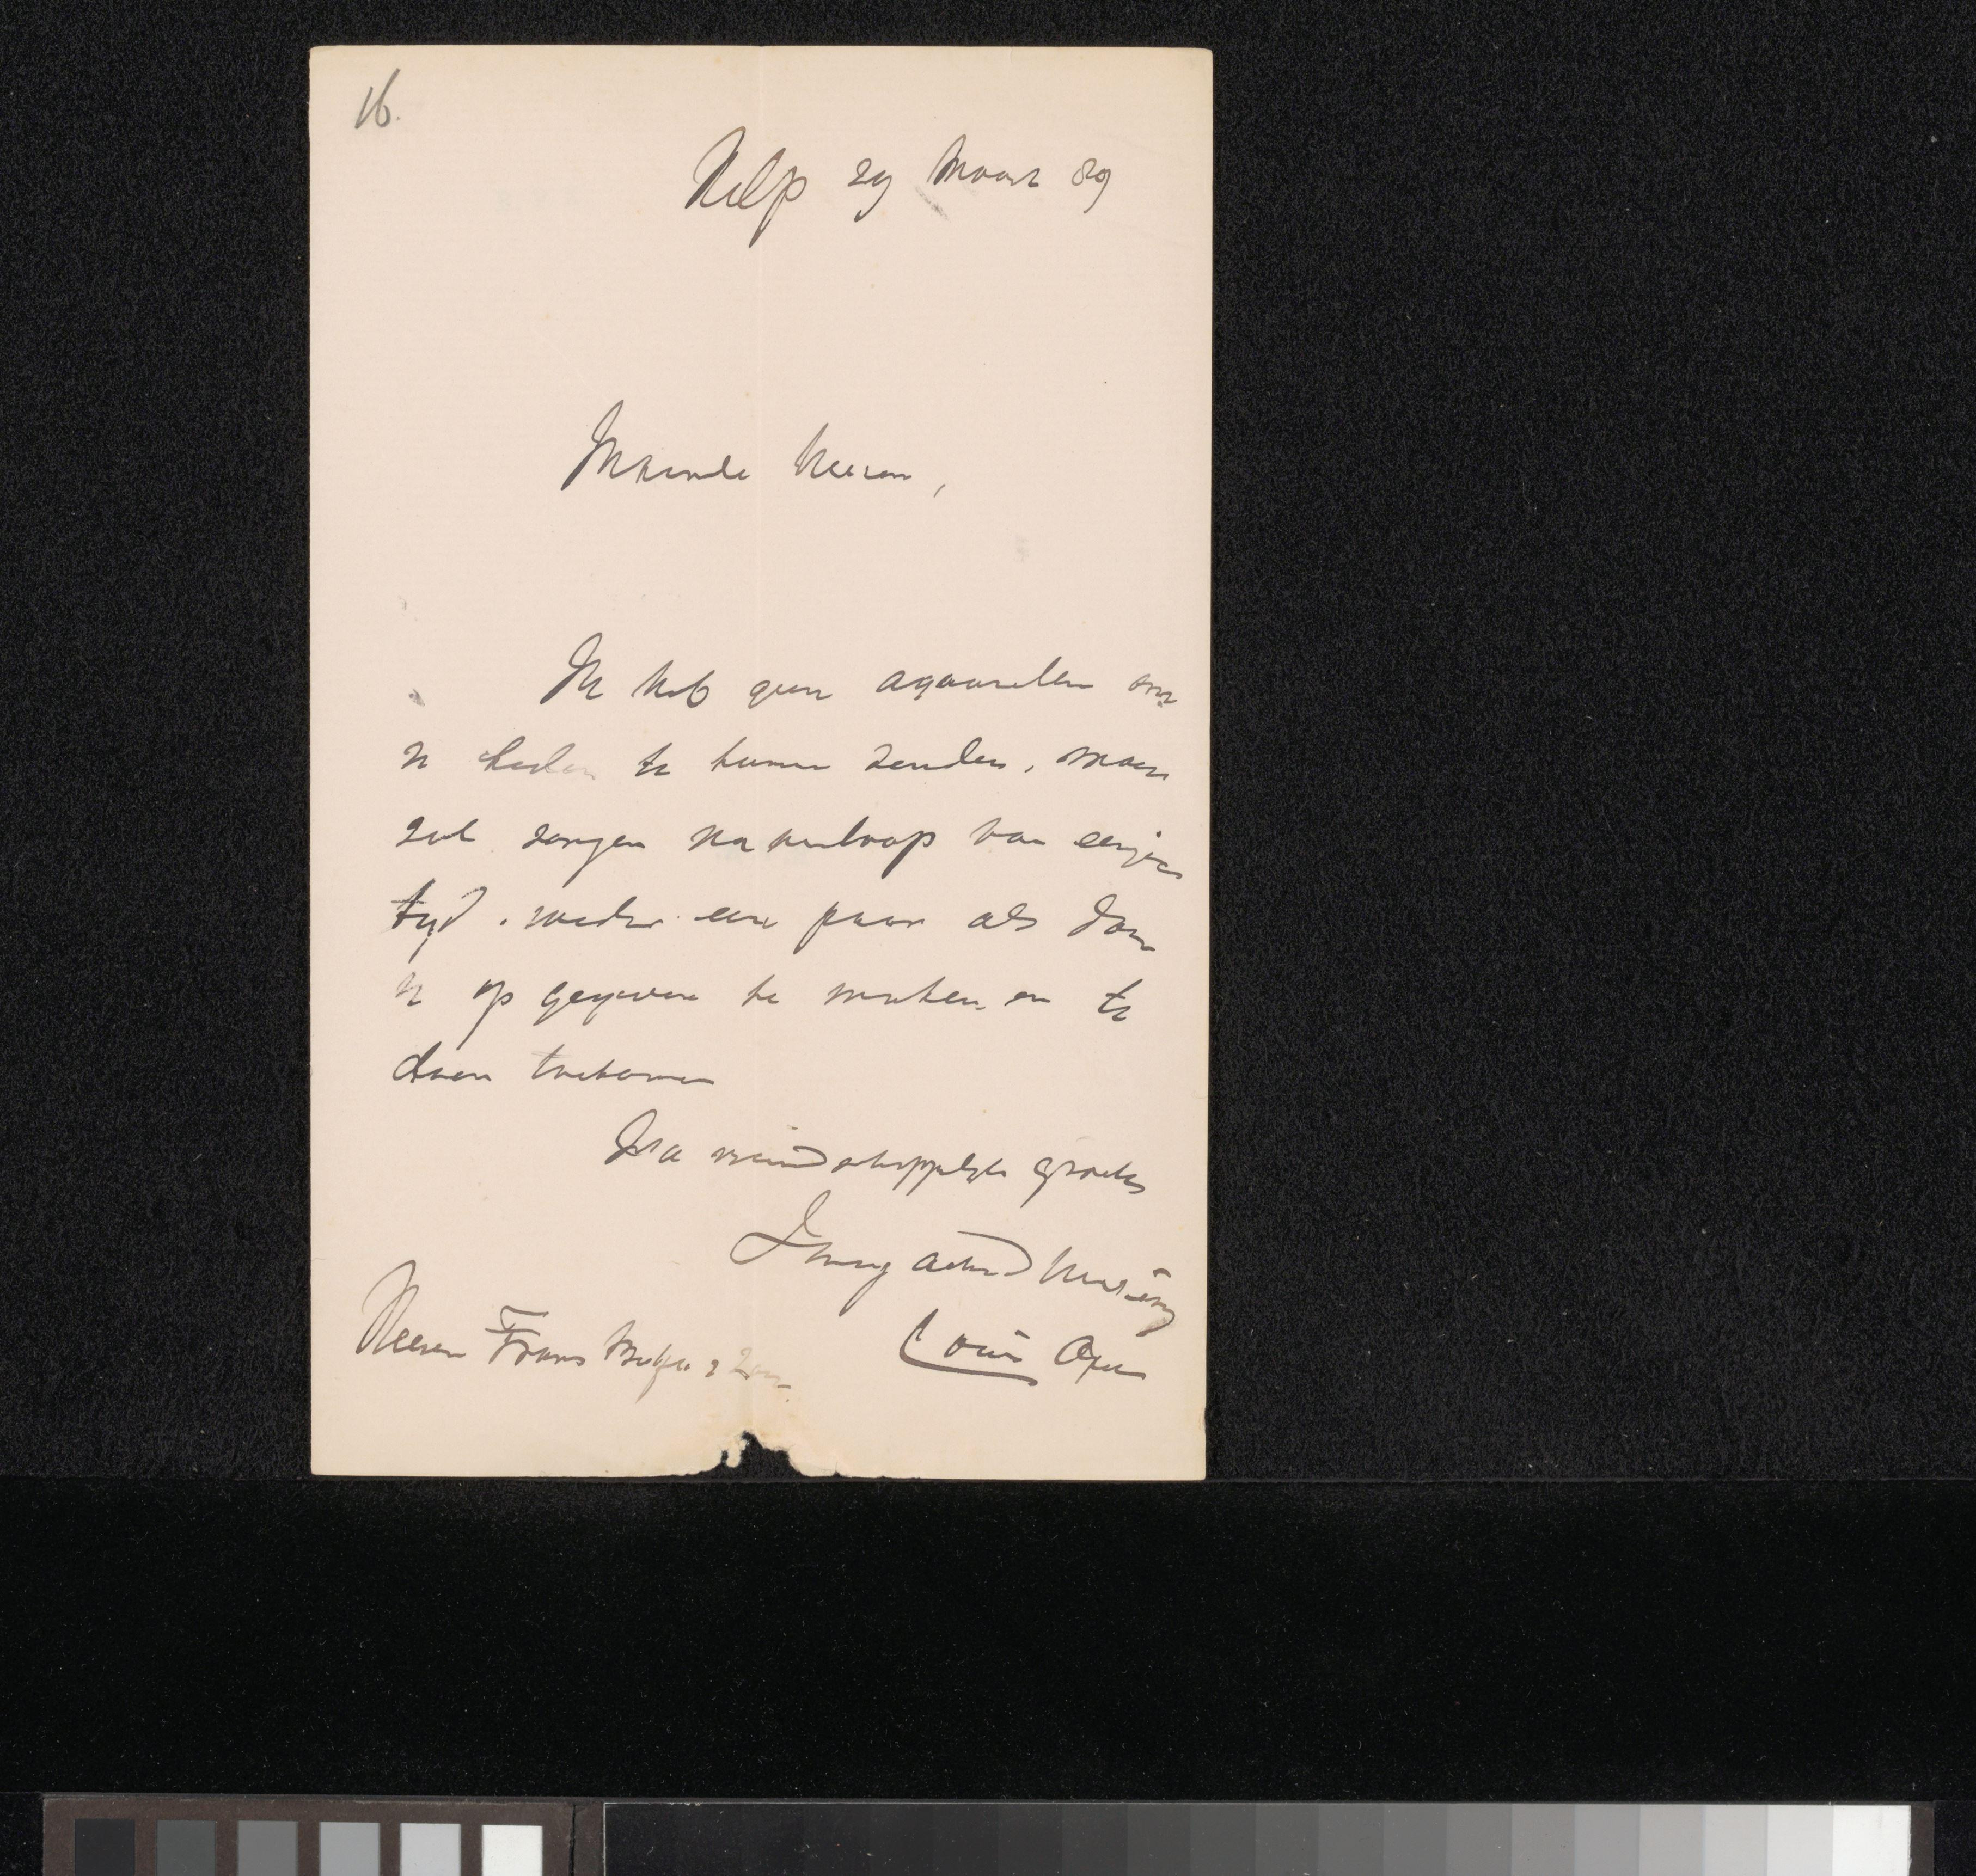 16.
Velp 29 Maart 89
Waarde Heeren,
Ik heb geen aquarellen om
u heden te kunnen zenden, maar
zal zorgen na verloop van eenigen
tijd weder een paar als door
u op gegeven te maken en te
doen toekomen
Na vriendschappelijke groeten
Hoogachtend
Louis Apol
Heeren Frans Buffa & Zon.